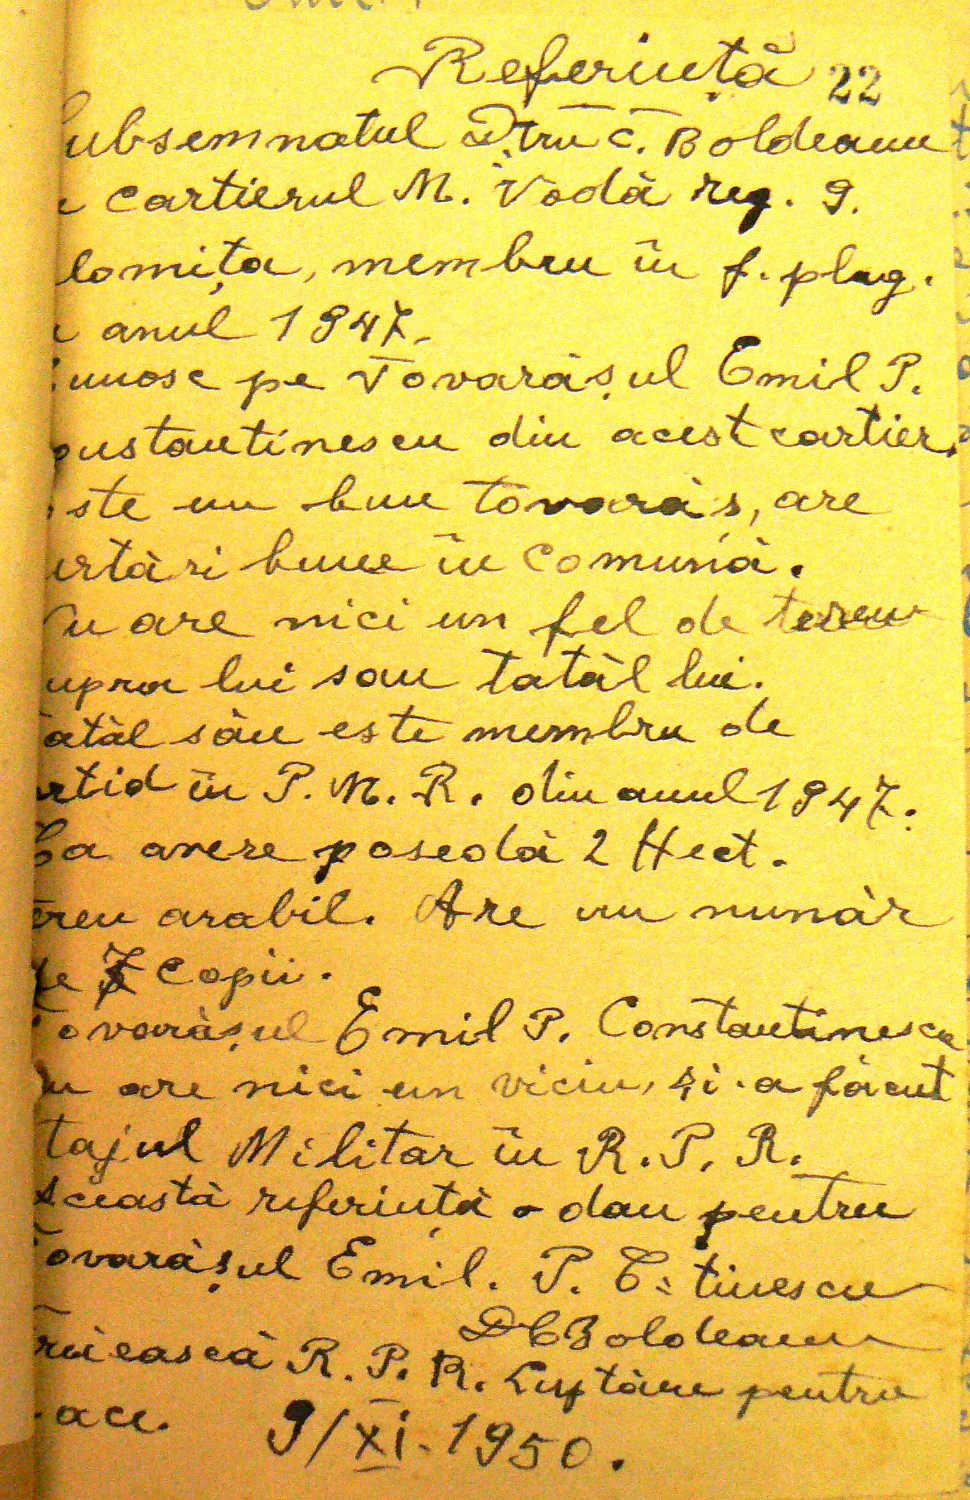 Referință 22
Subsemnatul Dtru C. Boldeanu
cartierul M. Vodă reg. 9.
lomița, membru în f. plug.
anul 1947.
unosc pe Tovarășul Emil P.
onstantinescu din acest cartier.
ste un bun tovarăș, are
urtări bune în comună.
Nu are nici un fel de teren
upra lui sau tatăl lui.
atăl său este membru de
rtid în P. M. R. din anul 1947.
Ca avere posedă 2 Hect.
eren arabil. Are un număr
de 7 copii.
Tovarășul Emil P. Constantinescu
nu are nici un viciu, și-a făcut
tajul Militar în R. P. R.
Această referință o dau pentru
Tovarășul Emil. P. C:tinescu
DCBoldeanu
răiească R. P. R. Luptăm pentru
ace. 9/XI.1950.